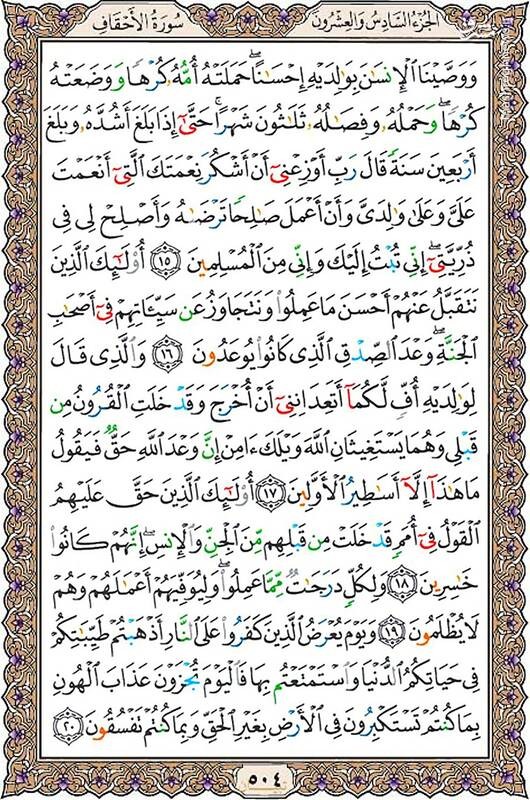 الجُزءُ السَّادِسُ وَالعِشْرُونَ
سُورَةُ الأَحْقَافِ
وَوَصَّيْنَا ٱلْإِنسَٰنَ بِوَٰلِدَيْهِ إِحْسَٰنًاۖ حَمَلَتْهُ أُمُّهُۥ كُرْهًا وَوَضَعَتْهُ
كُرْهًاۖ وَحَمْلُهُۥ وَفِصَٰلُهُۥ ثَلَٰثُونَ شَهْرًاۚ حَتَّىٰٓ إِذَا بَلَغَ أَشُدَّهُۥ وَبَلَغَ
أَرْبَعِينَ سَنَةً قَالَ رَبِّ أَوْزِعْنِىٓ أَنْ أَشْكُرَ نِعْمَتَكَ ٱلَّتِىٓ أَنْعَمْتَ
عَلَىَّ وَعَلَىٰ وَٰلِدَىَّ وَأَنْ أَعْمَلَ صَٰلِحًا تَرْضَىٰهُ وَأَصْلِحْ لِى فِى
ذُرِّيَّتِىٓۖ إِنِّى تُبْتُ إِلَيْكَ وَإِنِّى مِنَ ٱلْمُسْلِمِينَ ١٥ أُو۟لَٰٓئِكَ ٱلَّذِينَ
نَتَقَبَّلُ عَنْهُمْ أَحْسَنَ مَا عَمِلُوا۟ وَنَتَجَاوَزُ عَن سَيِّـَٔاتِهِمْ فِىٓ أَصْحَٰبِ
ٱلْجَنَّةِۖ وَعْدَ ٱلصِّدْقِ ٱلَّذِى كَانُوا۟ يُوعَدُونَ ١٦ وَٱلَّذِى قَالَ
لِوَٰلِدَيْهِ أُفٍّ لَّكُمَآ أَتَعِدَانِنِىٓ أَنْ أُخْرَجَ وَقَدْ خَلَتِ ٱلْقُرُونُ مِن
قَبْلِى وَهُمَا يَسْتَغِيثَانِ ٱللَّهَ وَيْلَكَ ءَامِنْ إِنَّ وَعْدَ ٱللَّهِ حَقٌّ فَيَقُولُ
مَا هَٰذَآ إِلَّآ أَسَٰطِيرُ ٱلْأَوَّلِينَ ١٧ أُو۟لَٰٓئِكَ ٱلَّذِينَ حَقَّ عَلَيْهِمُ
ٱلْقَوْلُ فِىٓ أُمَمٍ قَدْ خَلَتْ مِن قَبْلِهِم مِّنَ ٱلْجِنِّ وَٱلْإِنسِۖ إِنَّهُمْ كَانُوا۟
خَٰسِرِينَ ١٨ وَلِكُلٍّ دَرَجَٰتٌ مِّمَّا عَمِلُوا۟ۖ وَلِيُوَفِّيَهُمْ أَعْمَٰلَهُمْ وَهُمْ
لَا يُظْلَمُونَ ١٩ وَيَوْمَ يُعْرَضُ ٱلَّذِينَ كَفَرُوا۟ عَلَى ٱلنَّارِ أَذْهَبْتُمْ طَيِّبَٰتِكُمْ
فِى حَيَاتِكُمُ ٱلدُّنْيَا وَٱسْتَمْتَعْتُم بِهَا فَٱلْيَوْمَ تُجْزَوْنَ عَذَابَ ٱلْهُونِ
بِمَا كُنتُمْ تَسْتَكْبِرُونَ فِى ٱلْأَرْضِ بِغَيْرِ ٱلْحَقِّ وَبِمَا كُنتُمْ تَفْسُقُونَ ٢٠
٥٠٤